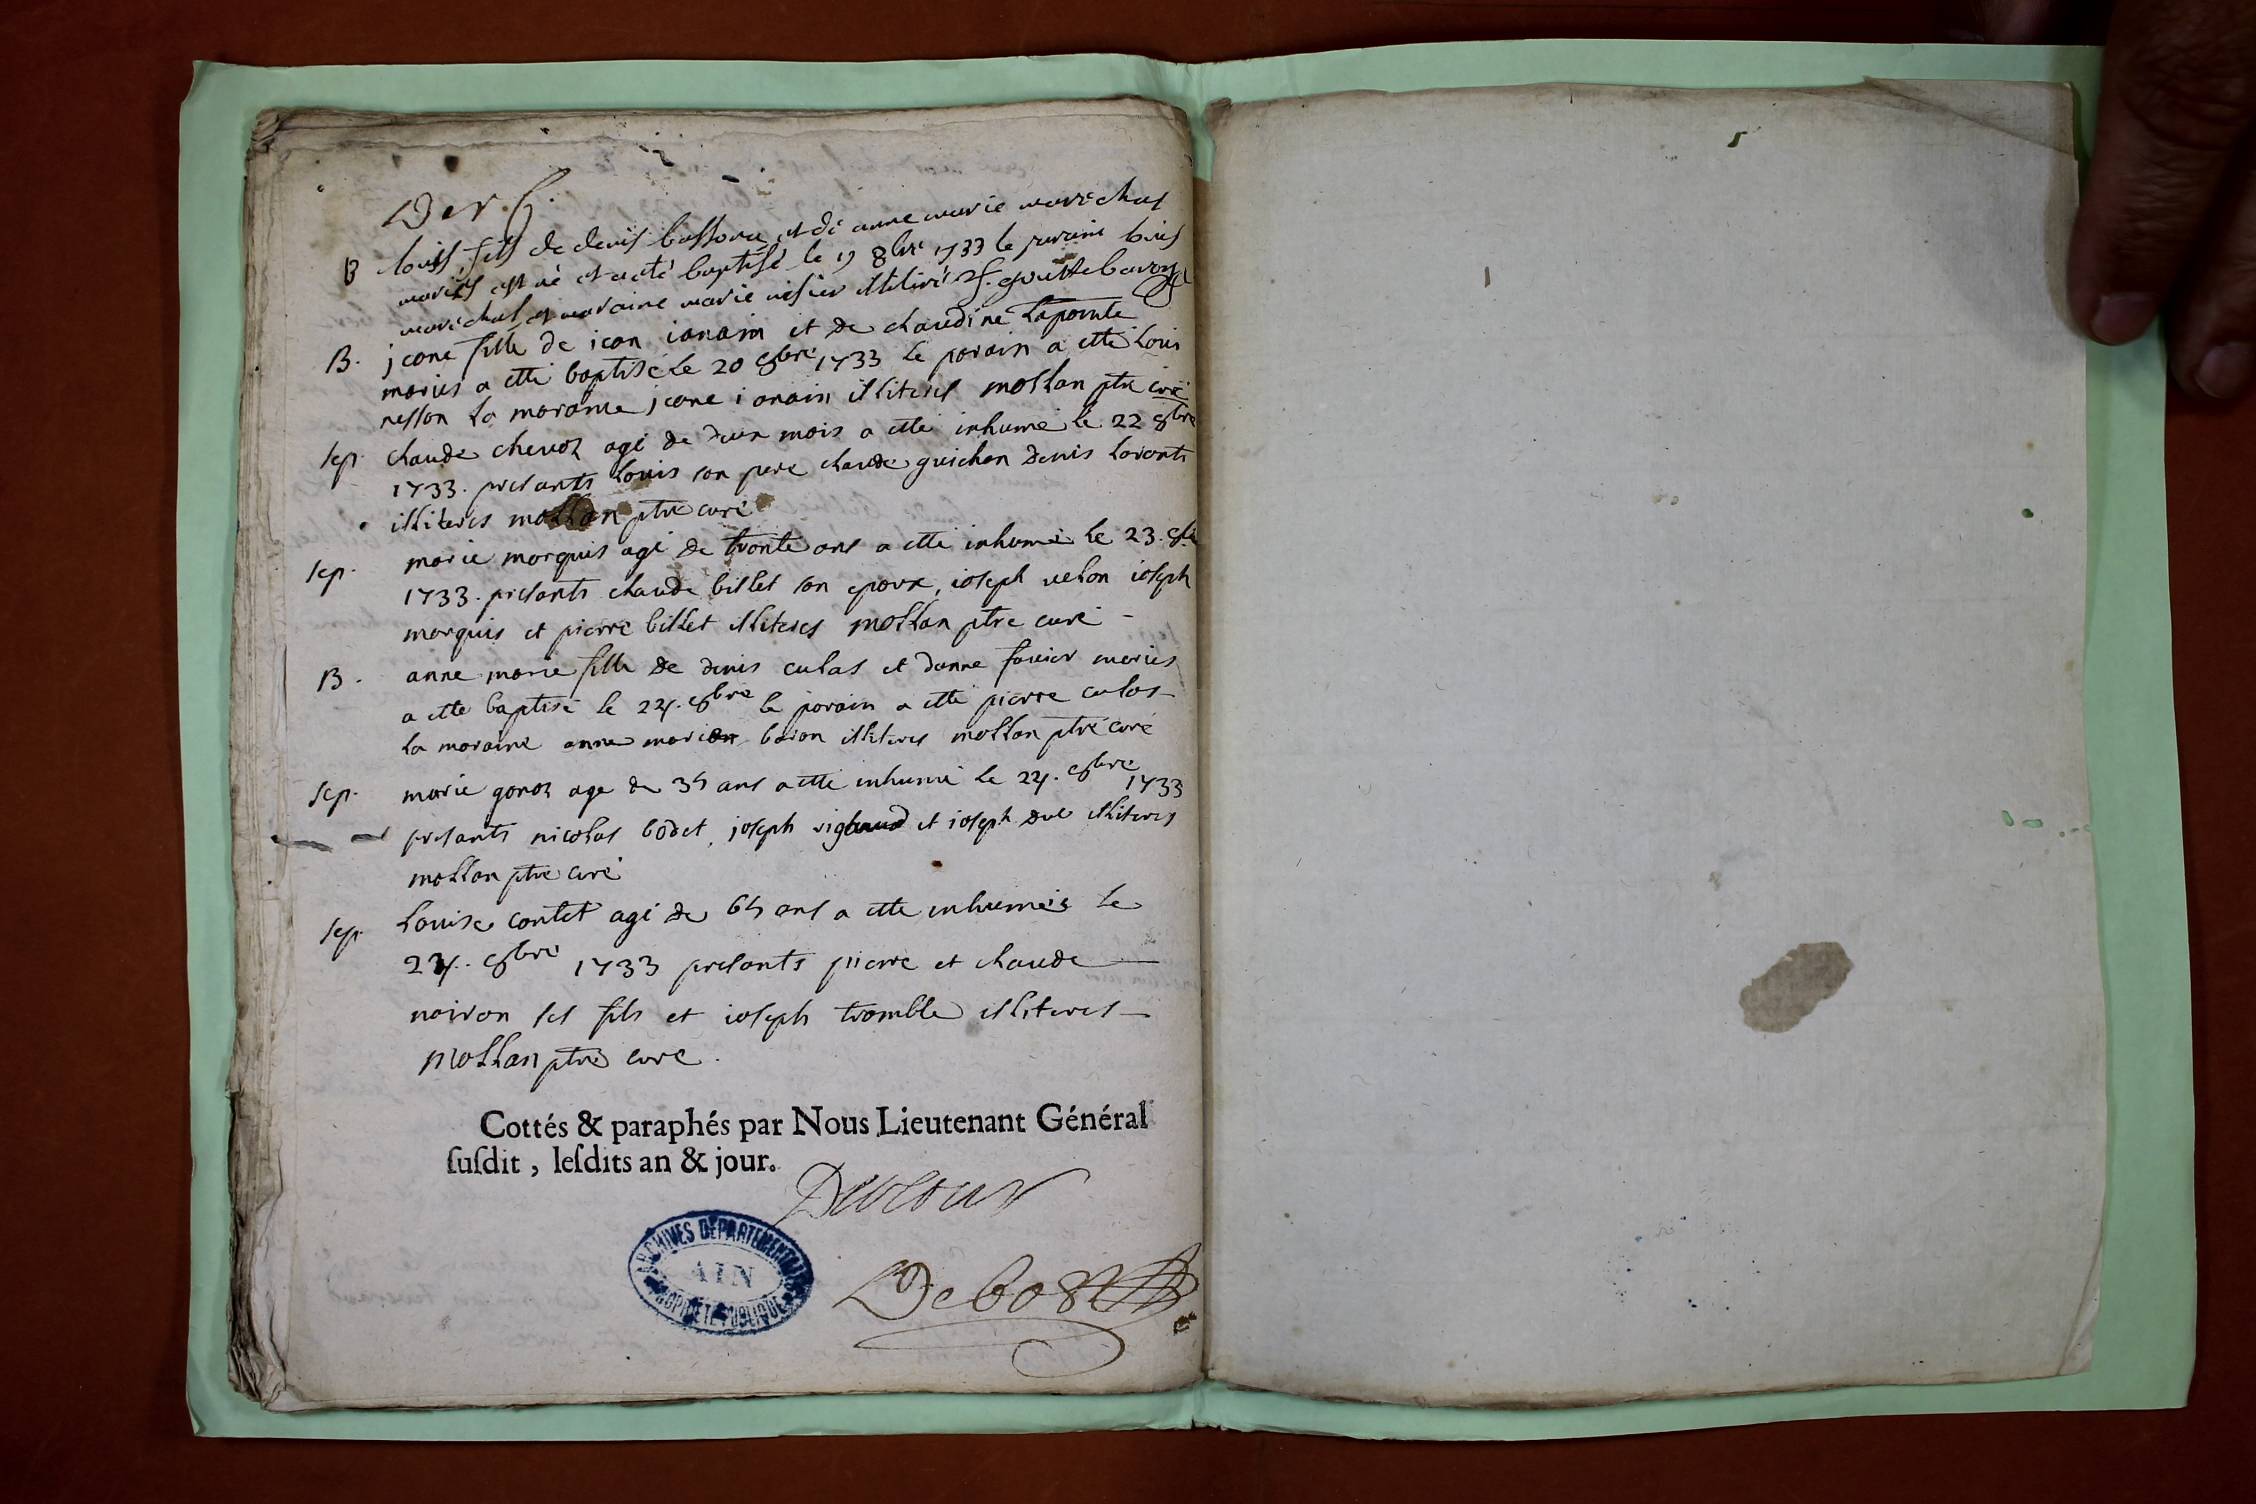 Der. f.
B louis fils de denis bassora et de anne marie marechal
mariés est né et a eté baptisé le 19 8bre 1733 le parain louis
marechal et maraine marie illitéré
B. jeane fille de jean janain et de claudine lapointe
mariés a etté baptisé le 20 8bre 1733 le parain a etté louis
nesson la maraine jeane janain illiterés mollan ptre curé
sep. claude chevoz agé de deux mois a etté inhumé le 22 8bre
1733. presants louis son pere claude guichon denis
illiteres mollan ptre curé
sep. marie marquis agé de trante ans a etté inhumé le 23. 8bre
1733. presants claude billet son epoux, joseph velon joseph
marquis et pierre billet illiteres mollan ptre curé -
B. anne marie fille de denis culas et danne favier maries
a etté baptisé le 24. 8bre le parain a etté pierre culas
la maraine anne marie baron illiteres mollan ptre curé
sep. marie gonoz age de 35 ans a etté inhumé le 24. 8bre 1733
presants nicolas bodet, joseph rigaud et joseph illiteres
mollan ptre curé
sep. louise contet agé de 65 ans a etté inhumés le
24. 8bre 1733 presants pierre et claude
noiron ses fils et joseph tramble illiteres
mollan ptre curé.
Cottés & paraphés par Nous Lieutenant Général
susdit, lesdits an & jour.
Debost
ARCHIVES DÉPARTEMENTALES
AIN
PROPRIÉTÉ PUBLIQUE